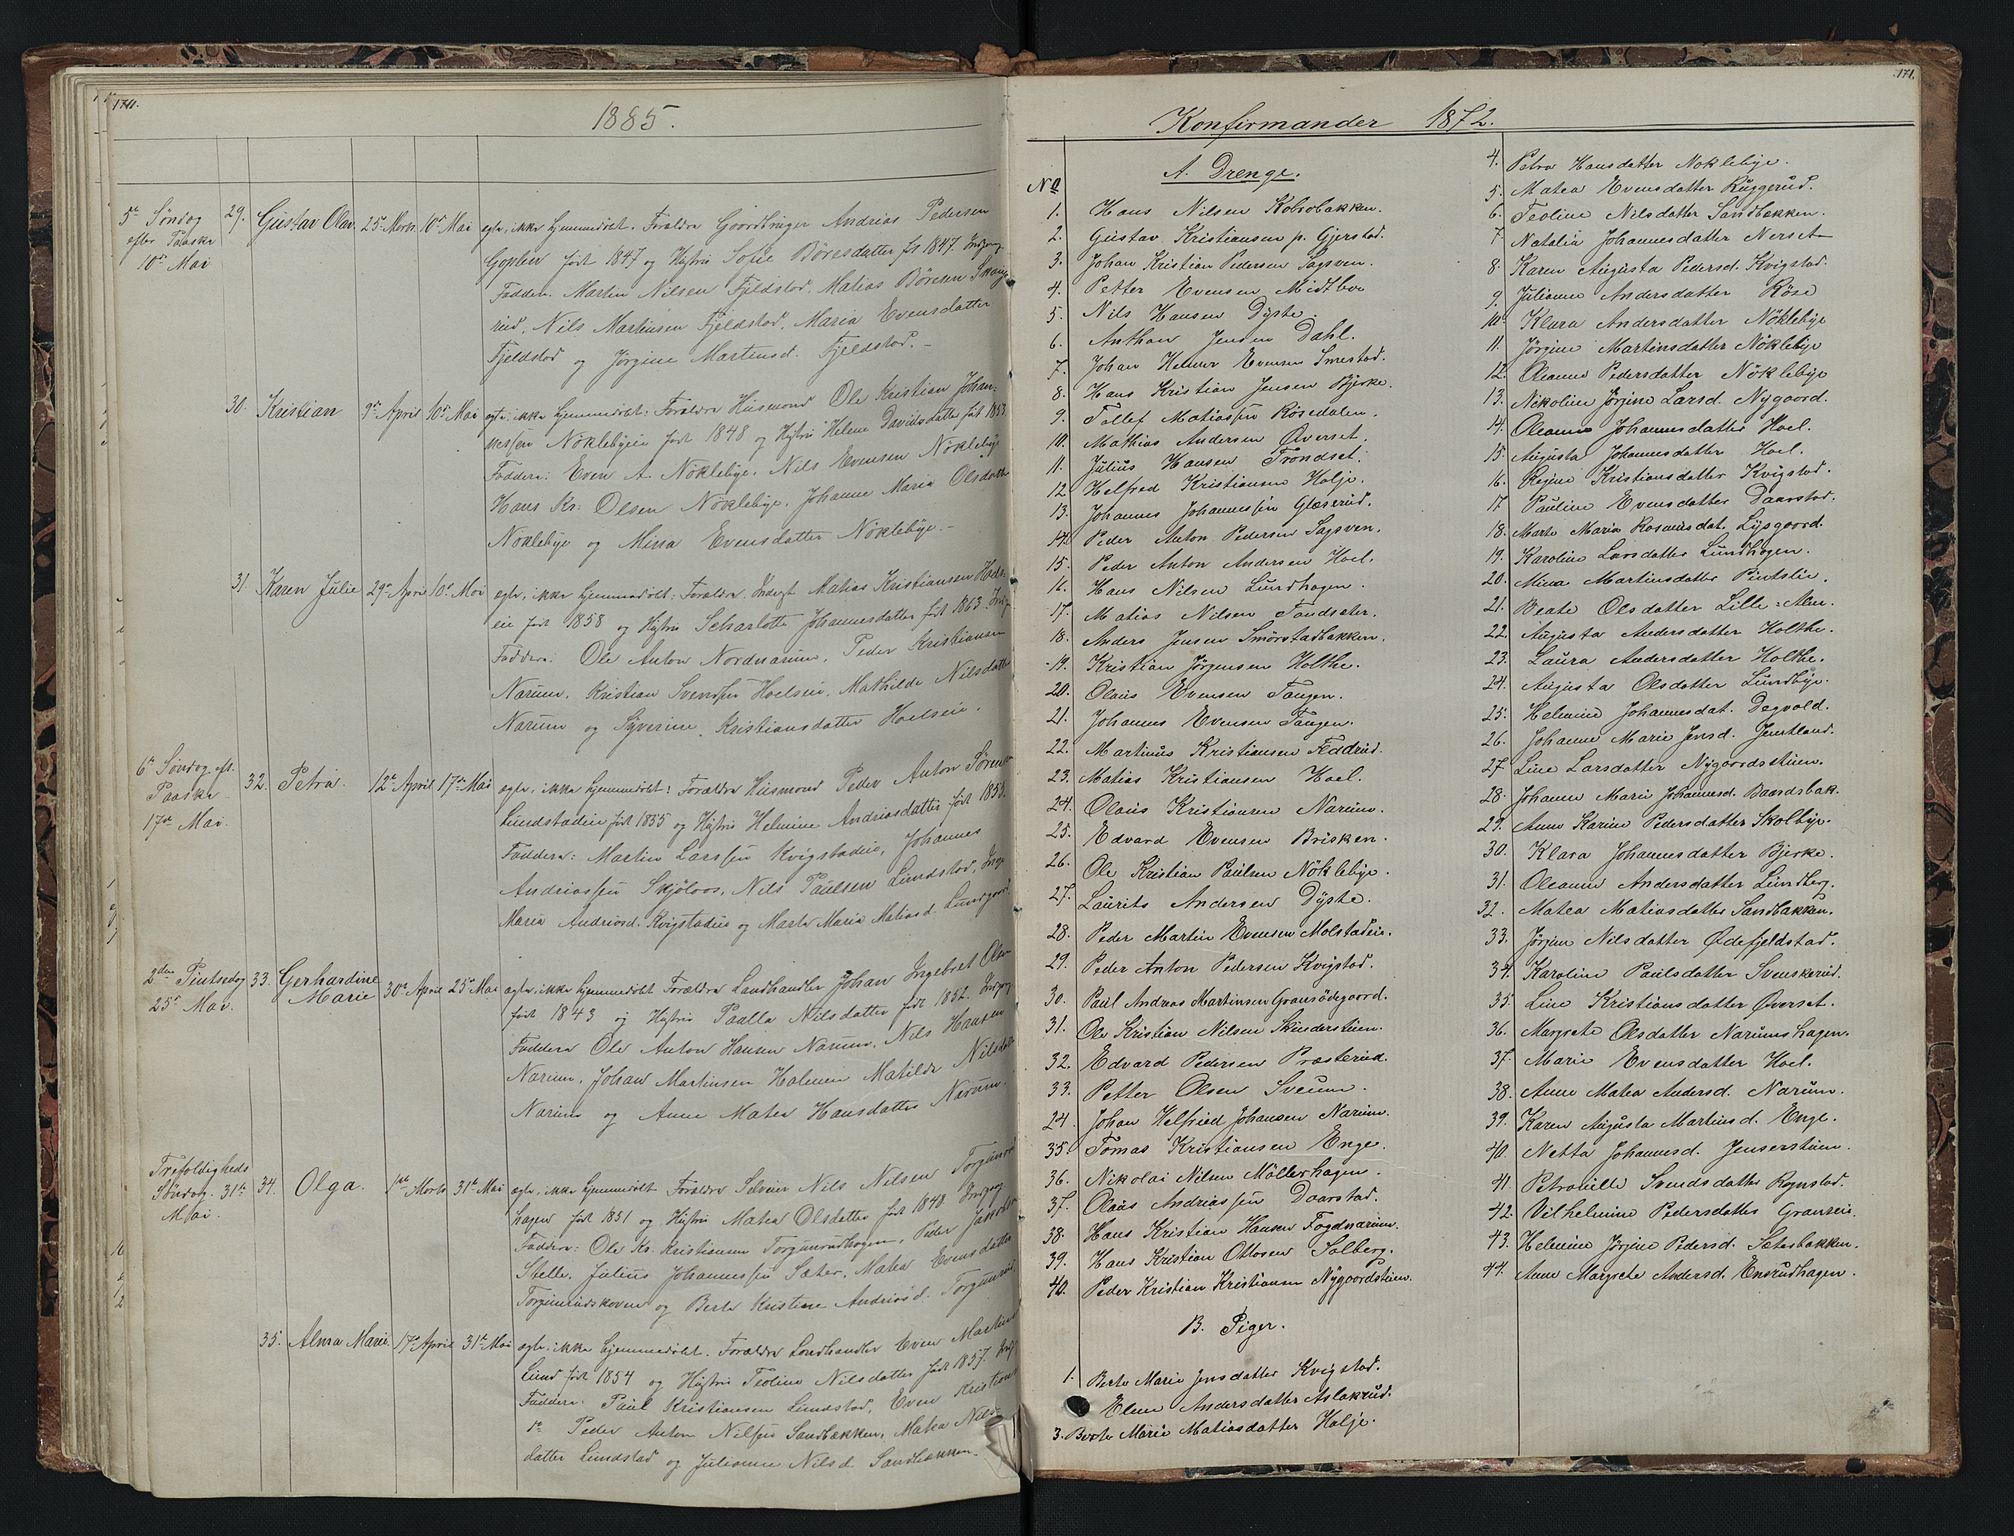 170.
1885.
5te Søndag
efter Paaske
10de Mai
29. Gustav Olav. 25de Marts 10de Mai ægte, ikke hjemmedøbt. Forældre Gaardbruger Andrias Pedersen
født 1847 og Hustru Sofie Böresdatter f. 1847.
Faddere: Martin Nilsen Fjeldstad, Matias Böresen
rud, Nils Martinsen Fjeldstad, Maria Evensdatter
Fjeldstad og Jørgine Martinsd. Fjeldstad.
30. Kristian 9de April 10de Mai ægte, ikke hjemmedøbt: Forældre Husmand Ole Kristian Johan-
nessen Nøklebyeie født 1848 og Hustru Helene Davidsdatter født 1853.
Faddere: Even A. Nøklebye, Nils Evensen Nøklebye
Hans Kr. Olsen Nøklebye, Johanne Maria Olsdatter
Nøklebye og Mina Evensdatter Nøklebye.
31. Karen Julie 29de April 10de Mai ægte, ikke hjemmedøbt: Forældre Matias Kristiansen Hoels-
eie født 1858 og Hustru Scharlotte Johannesdatter født 1863.
Faddere: Ole Anton Nordnarum, Peder Kristiansen
Narum, Kristian Svendsen Hoelseie, Mathilde Nilsdatter
Narum og Syverine Kristiansdatter Hoelseie.
6te Søndag eft.
Paaske
17de Mai.
32. Petra. 12te April 17de Mai ægte, ikke hjemmedøbt: Forældre Husmand Peder Anton Sørensen
Lundstadeie født 1855 og Hustru Helmine Andriasdatter født 1853.
Faddere: Martin Larssen Kvigstadeie, Johannes
Andriassen Skjølaas, Nils Paulsen Lundstad,
Maria Andriasd. Kvigstadeie og Marte Maria Matiasd. Lundgaard
2den Pintsedag
25de Mai.
33. Gerhardine
Marie 30te April 25de Mai ægte, ikke hjemmedøbt Forældre Landhandler Johan Ingebret Olsen
født 1843 og Hustru Paulla Nilsdatter født 1852.
Faddere Ole Anton Hansen Narum, Nils Hansen
Narum, Johan Martinsen Halmen Matilde Nilsdatter
Narum og Anne Matea Hansdatter Narum.
Trefoldigheds
Søndag 31te
Mai.
34. Olga. 1ste Marts 31te Mai ægte, ikke hjemmedøbt Forældre Selveier Nils Nilsen Torgunrud
hagen født 1851 og Hustru Matea Olsdatter født 1848
Faddere: Ole Kr. Kristiansen Torgunrudhagen, Peder
Stelle, Julius Johannessen Sæter, Matea Evensdatter
Torgunrudskoven og Berte Kristine Andriasd. Torgunrud
35. Alma Marie. 17de April 31te Mai ægte, ikke hjemmedøbt. Forældre Landhandler Even Martinsen
Lund født 1854 og Hustru Teoline Nilsdatter født 1857.
Faddere: Paul Kristiansen Lundstad, Even Kristians-
Peder Anton Nilsen Sandbakken, Matea Nils-
datter Lundstad og Julianne Nilsd. Sandbakken.
171.
Konfirmander 1872.
No A. Drenge.
1. Hans Nilsen Kolsobakken.
2. Gustav Kristiansen p. Gjerstad.
3. Johan Kristian Pedersen Sagsven.
4. Petter Evensen Midtbø
5. Nils Hansen Dyste.
6. Anthon Jensen Dahl.
7. Johan Helmer Evensen Smestad.
8. Hans Kristian Jensen Bjerke.
9. Tollef Matiassen Rosedalen.
10. Mathias Andersen Øverset.
11. Julius Hansen Trondset.
12. Helfred Kristiansen Holje.
13. Johannes Johannessen Glæserud.
14. Peder Anton Pedersen Sagsven.
15. Peder Anton Andersen Hoel.
16. Hans Nilsen Lundhagen.
17. Matias Nilsen Tandsæter.
18. Anders Jensen Smørstadbakken.
19. Kristian Jørgensen Holthe.
20. Olaus Evensen Tangen.
21. Johannes Evensen Tangen.
22. Martinus Kristiansen Feddrud.
23. Matias Kristiansen Hoel.
24. Olaus Kristiansen Narum.
25. Edvard Evensen Brisken.
26. Ole Kristian Paulsen Nöklebye.
27. Laurits Andersen Dyste.
28. Peder Martin Evensen Molstadeie.
29. Peder Anton Pedersen Kvigstad.
30. Paul Andreas Martinsen Granødegaard.
31. Ole Kristian Nilsen Skinderstuen.
32. Edvard Pedersen Præsterud.
33. Petter Olsen Sveum.
24. Johan Helfried Johansen Narum.
35. Tomas Kristiansen Enge.
36. Nikolai Nilsen Möllerhagen.
37. Olaus Andriassen Daarstad.
38. Hans Kristian Hansen Fogdnarum.
39. Hans Kristian Ottosen Solberg.
40. Peder Kristian Kristiansen Nygaardstuen.
B. Piger.
1. Berte Marie Jensdatter Kvigstad.
Elene Andersdatter Aslakrud.
3. Berte Marie Matiasdatter Holje.
4. Petra Hansdatter Noklebye.
5. Matea Evensdatter Ruggerud.
6. Teoline Nilsdatter Sandbakken.
7. Natalia Johannesdatter Nerset
8. Karen Augusta Pedersd. Kvigstad.
9. Julianne Andersdatter Röse
10. Klara Andersdatter Nöklebye
11. Jørgine Martinsdatter Nöklebye
12. Oleanne Pedersdatter Nöklebye
13. Nikoline Jörgine Larsd. Nygaard.
14. Oleanne Johannesdatter Hoel.
15. Augusta Johannesdatter Hoel.
16. Regine Kristiansdatter Kvigstad.
17. Pauline Evensdatter Daarstad.
18. Marte Maria Rasmusdat. Lysgaard.
19. Karoline Larsdatter Lundhagen.
20. Mina Martinsdatter Pintslie.
21. Beate Olsdatter Lille-Alm.
22. Augusta Andersdatter Holthe.
23. Laura Andersdatter Holthe.
24. Augusta Olsdatter Lundbye.
25. Helmine Johannesdat. Dagvold.
26. Johanne Marie Jensd. Jemtland.
27. Line Larsdatter Nygaardsstuen.
28. Johanne Marie Johannesd. Baardsbak.
29. Anne Karine Pedersdatter Skolbye.
30. Klara Johannesdatter Bjerke.
31. Oleanne Andersdatter Lundberg.
32. Matea Matiasdatter Sandbakken.
33. Jørgine Nilsdatter Ødefjeldstad.
34. Karoline Paulsdatter Svenskerud.
35. Line Kristiansdatter Øverset.
36. Margrete Olsdatter Narumshagen.
37. Marie Evensdatter Hoel.
38. Anne Matea Andersd. Narum.
39. Karen Augusta Martinsd. Enge.
40. Netta Johannesd. Jenserstuen.
41. Petronille Svendsdatter Rognstad.
42. Vilhelmine Pedersdatter Granseie.
43. Helmine Jörgine Pedersd. Sætesbakken.
44. Anne Margrete Andersd. Ensrudhagen.